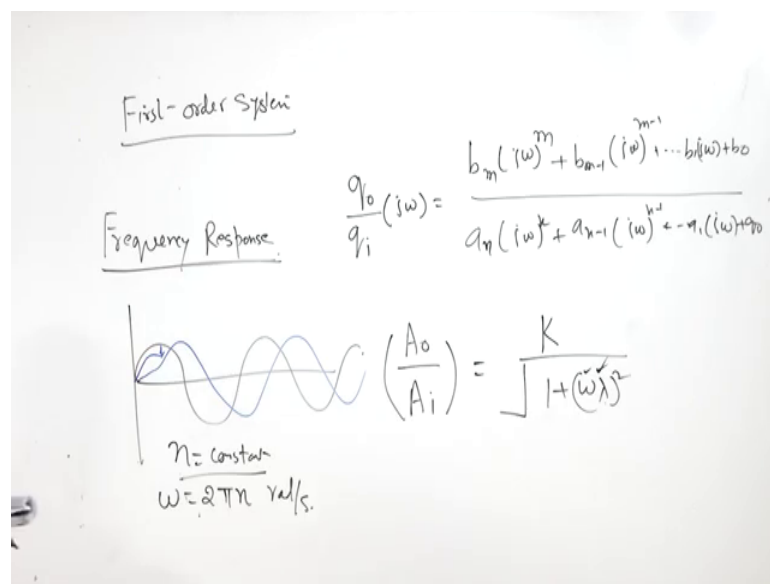 First-order System
Frequency Response
qo/qi (iω) = bm(iω)^m + bm-1(iω)^m-1 + ... b1(iω)+b0 / an(iω)^n + an-1(iω)^n-1 + -- a1(iω)+a0
(Ao/Ai) = K / √1+(ωλ)²
n = constan
ω = 2πn rad/s.